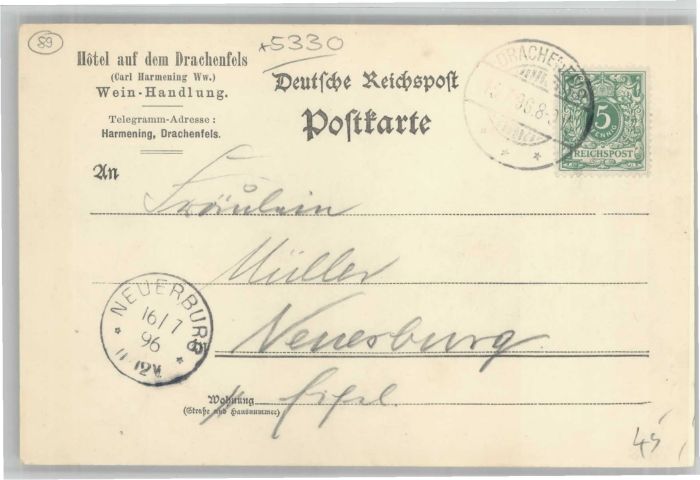 89
*5330
Hôtel auf dem Drachenfels
(Carl Harmening Ww.)
Wein-Handlung.
Telegramm-Adresse:
Harmening, Drachenfels.
Deutsche Reichspost
Postkarte
DRACHENFELS
5
PFENNIG
REICHSPOST
An
Fräulein
Müller
Neuerburg
NEUERBURG
16/7
96
Wohnung
(Straße und Hausnummer)
Eifel.
45